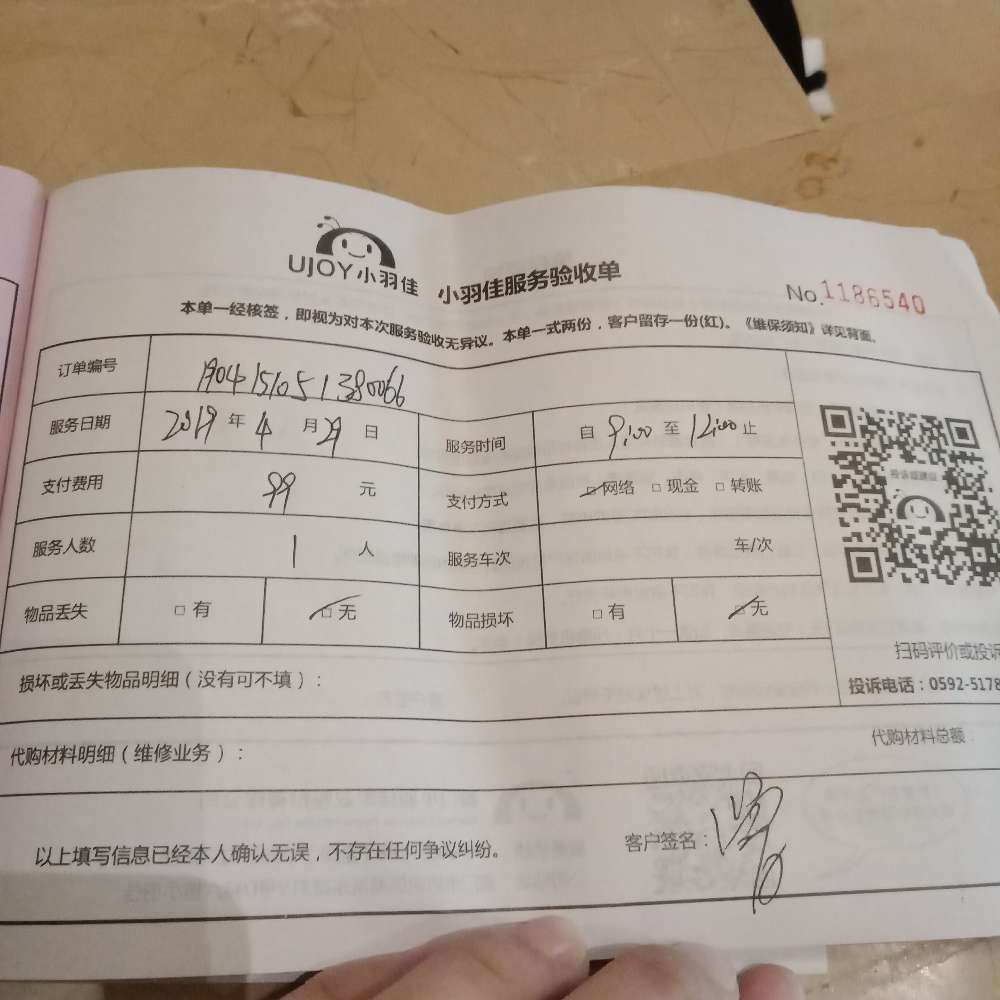 UJOY小羽佳 小羽佳服务验收单 No.1186540
本单一经核签，即视为对本次服务验收无异议。本单一式两份，客户留存一份(红)。《维保须知》详见背面。
订单编号 1904151051380066
服务日期 2019 年 4 月 29 日 服务时间 自 9:00 至 12:00 止
支付费用 99 元 支付方式 □网络 □现金 □转账
服务人数 1 人 服务车次 车/次
物品丢失 □有 □无 物品损坏 □有 □无
扫码评价或投诉
损坏或丢失物品明细（没有可不填）：
投诉电话：0592-5178
代购材料明细（维修业务）： 代购材料总额：
以上填写信息已经本人确认无误，不存在任何争议纠纷。 客户签名：